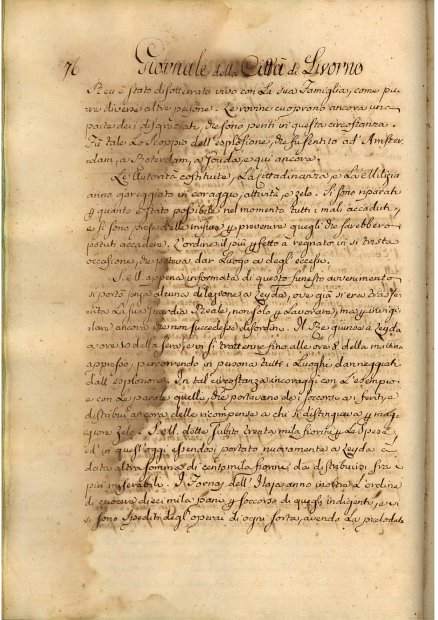 76 Giornale della Città di Livorno
Reu è stato disotterrato vivo con La sua Famiglia, come pu
re diverse altre persone. Le rovine cuoprono ancora una
parte dei disgraziati, che sono periti in questa circostanza.
Fù tale Lo Scoppio dell'esplosione, che fù sentito ad Amster
dam, a Roterdam, a Gouda, e qui ancora.
Le Autorità costituite, La cittadinanza e La Milizia
anno gareggiato in coraggio, attività, e zelo. Si sono riparati
p quanto è stato possibile nel momento tutti i mali accaduti,
e si sono prese delle misure p prevenire quegli che sarebbero
potuti accadere. L'ordine il più pfetto à regnato in sì trista
occasione, che poteva dar Luogo a degli eccessi.
S. M. appena informata di questo funesto avvenimento
si portò senza alcuna dilazione a Leyda, ove già si era tras
ferita La sua Guardia Reale, non solo p Lavorare, ma p invigi
lare ancora che non succedesse disordine. Il Re giunse a Leyda
a ore 10 della sera, e vi si trattenne fino alle ore 8 della mattina
appresso, percorrendo in persona tutti i Luoghi danneggiati
dall'esplosione. In tal circostanza incoraggì con L'esempio
e con Le parole quelle, che portavano dei soccorsi a' feriti, e
distribuì ancora delle ricompense a chi si distingueva p mag
giore zelo. S. M. dette subito trenta mila fiorini p Le spese,
ed in quest'oggi essendosi portato nuovamente a Leyda à
data altra somma di cento mila fiorini da distribuirsi fra i
più miserabili. I Fornaj dell'Haja anno inoltre L'ordine
di cuocere dieci mila pani p soccorso di quegli indigenti, e vi
si sono spediti degl'operai di ogni sorta, avendo La prelodata